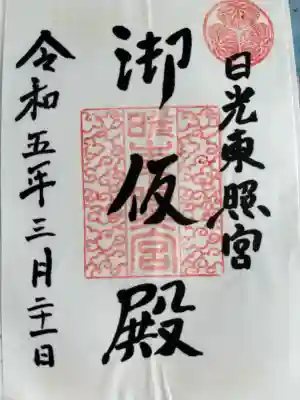 日光東照宮
御仮殿
令和五年三月二十一日